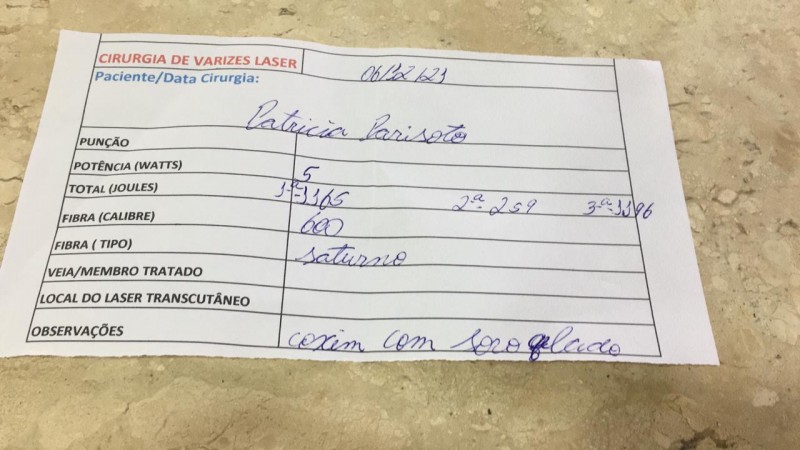 CIRURGIA DE VARIZES LASER 06/12/21
Paciente/Data Cirurgia:
Patricia Parisoto
PUNÇÃO
POTÊNCIA (WATTS) 5
TOTAL (JOULES) 1ª-1165 2ª-259 3ª-1196
FIBRA (CALIBRE) 600
FIBRA ( TIPO) saturno
VEIA/MEMBRO TRATADO
LOCAL DO LASER TRANSCUTÂNEO
OBSERVAÇÕES coxim com soro gelado